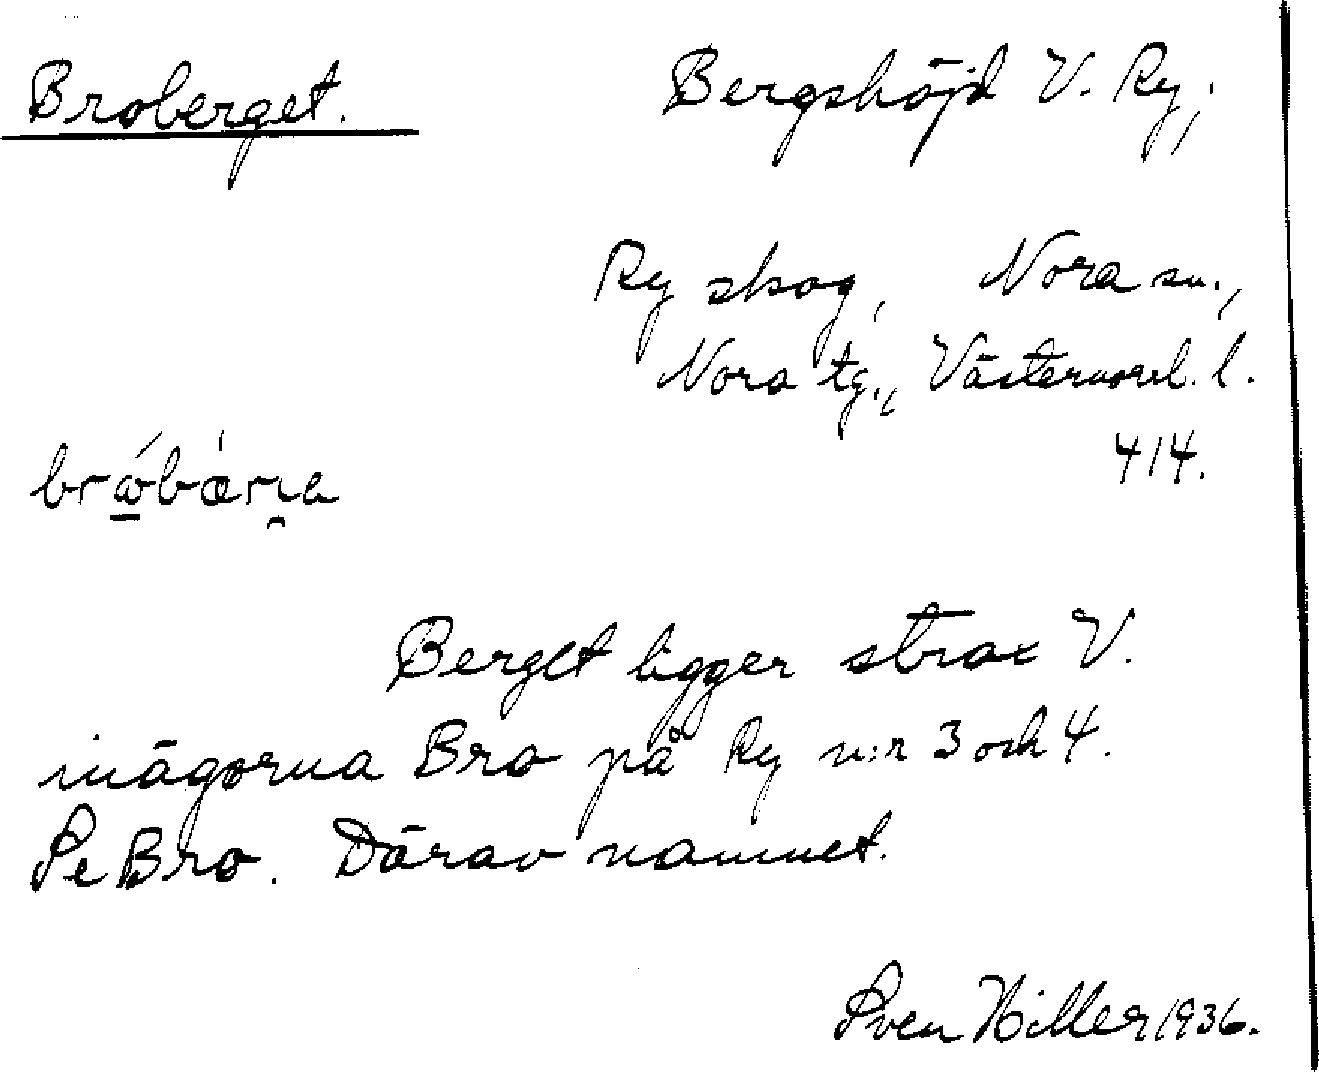 Broberget. Bergshöjd V. Ry;
Ry skog, Nora sn.,
Nora tg., Västernorrl. l.
414.
Berget ligger strax V.
inägorna Bro på Ry n:r 3 och 4.
Se Bro. Därav namnet.
Sven Hiller 1936.